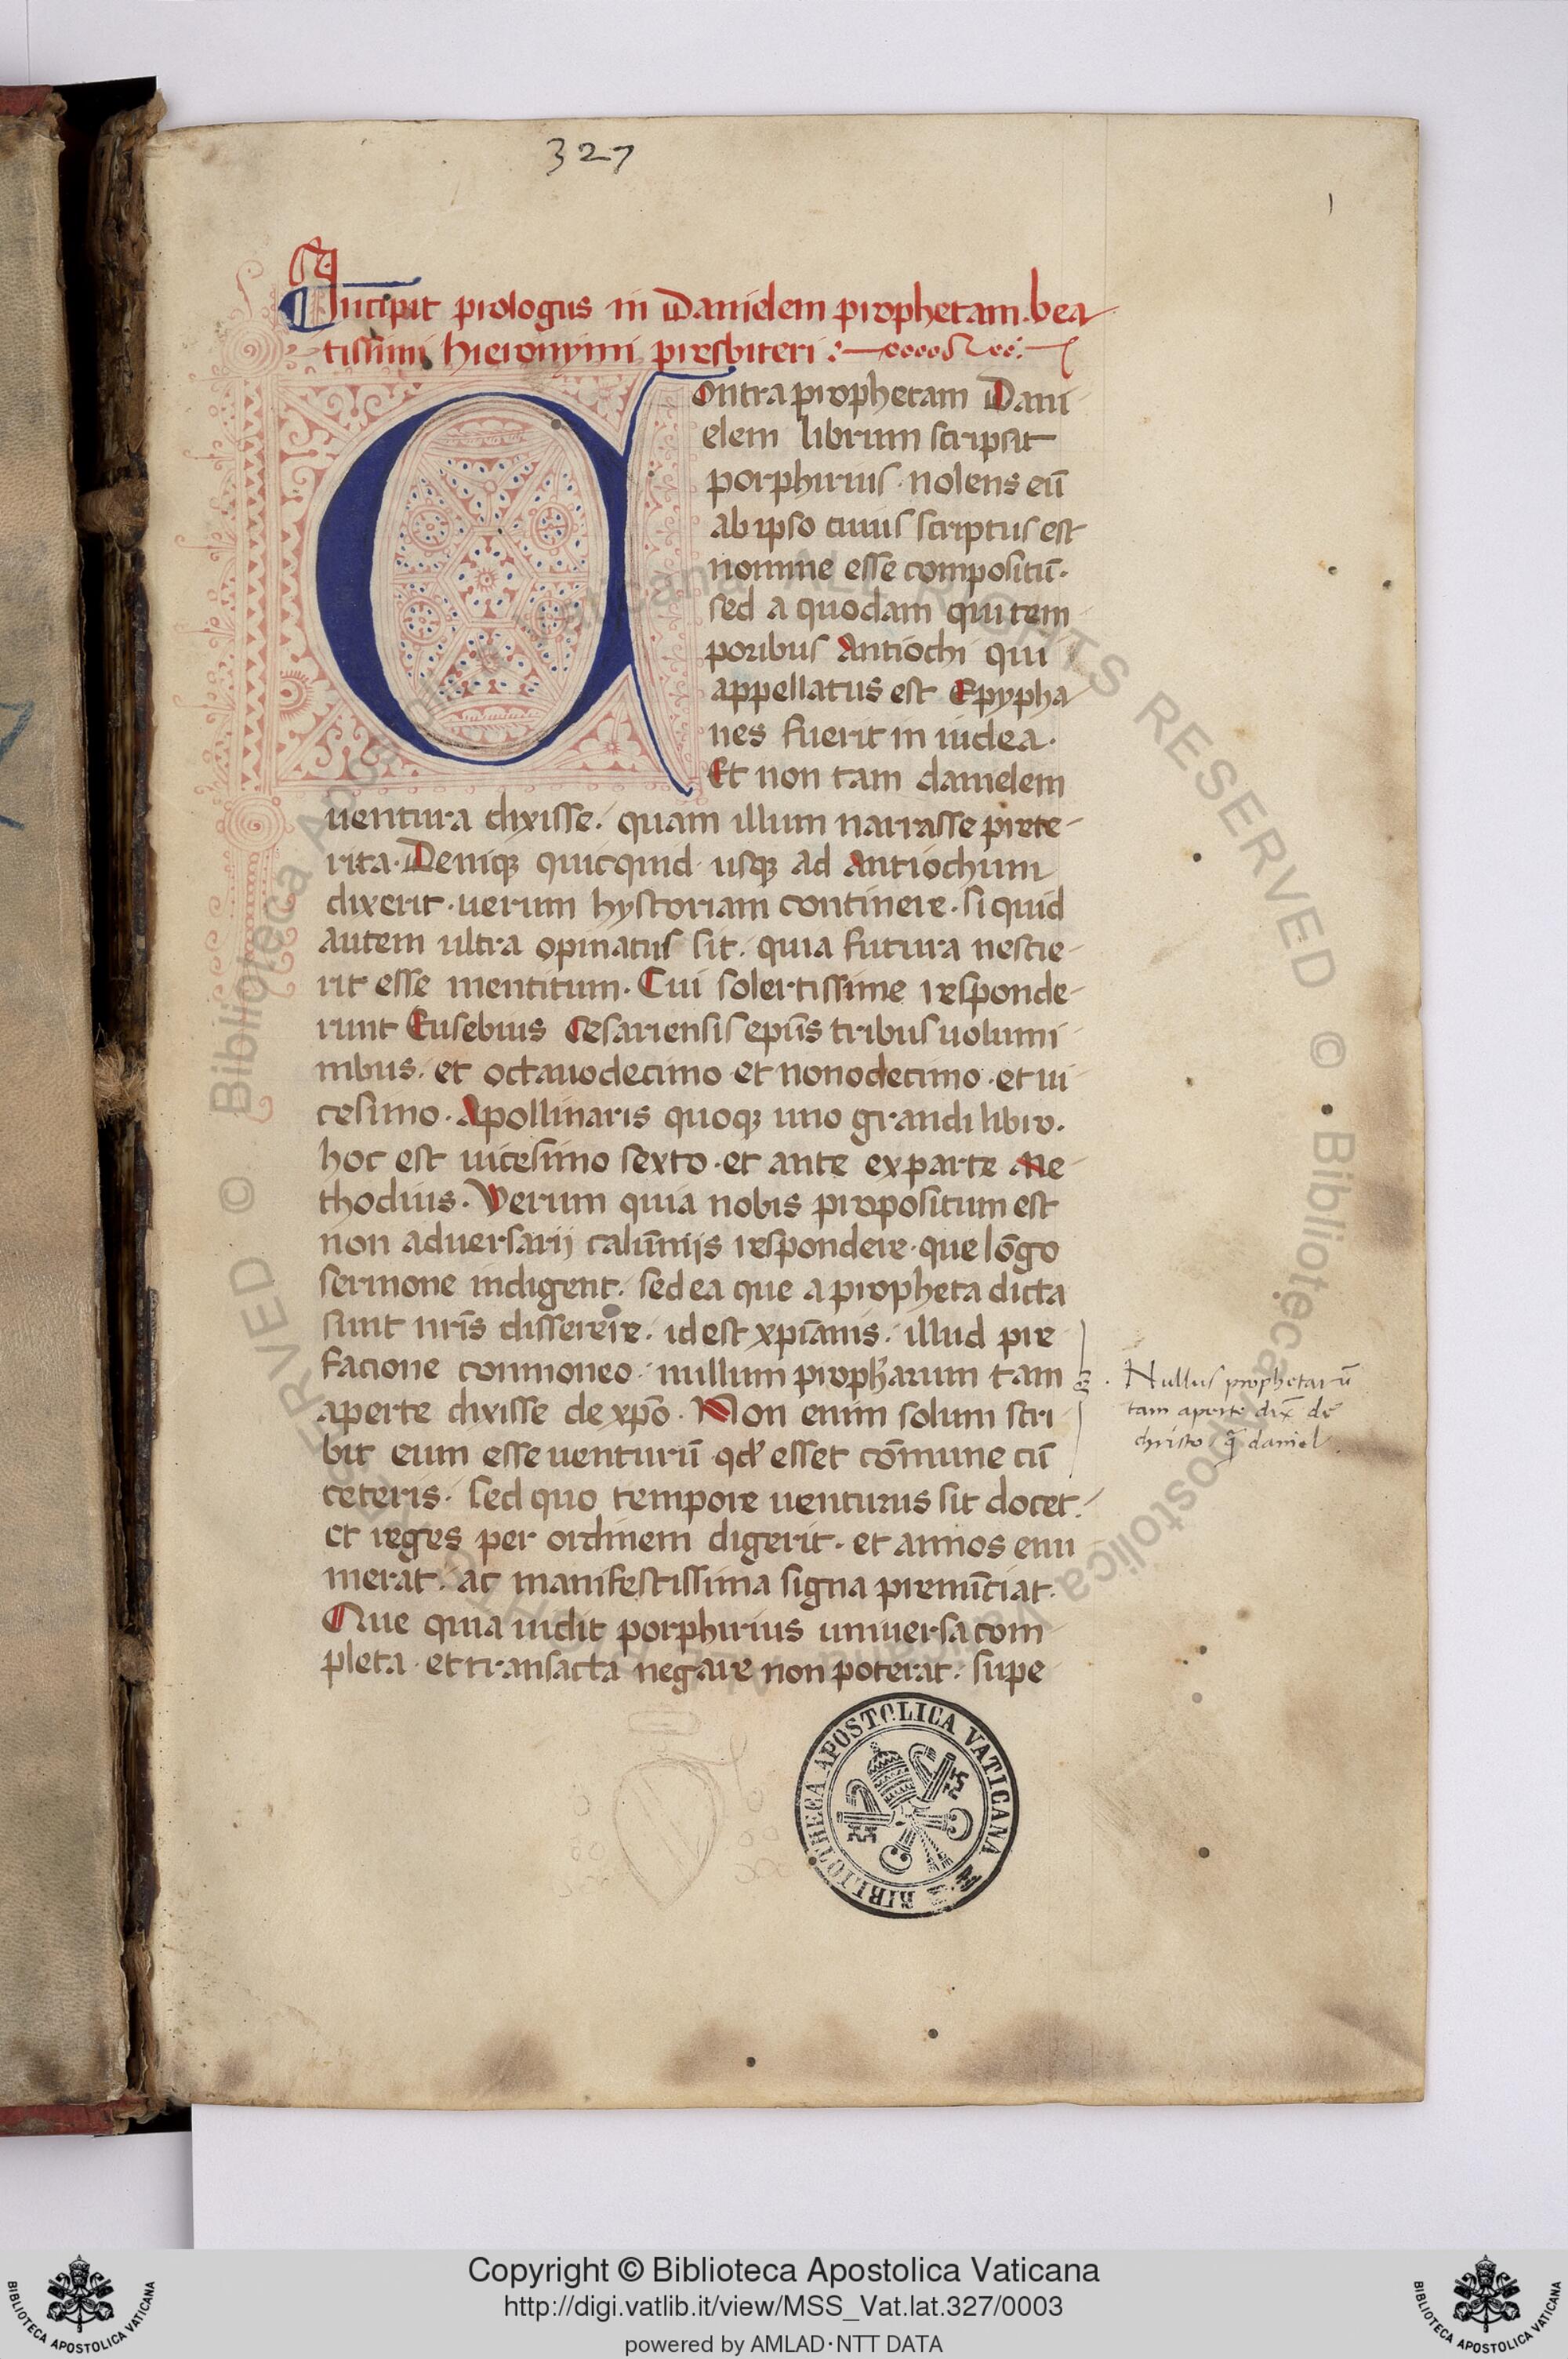 327
1
Incipit prologus in Danielem prophetam. bea
tissimi hieronymi presbiteri :
Contra prophetam Dani
elem librum scripsit
porphirius. nolens eū
ab ipso cuius scriptus est
nomine esse compositū.
sed a quodam qui tem
poribus Antiochi qui
appellatus est Epypha
nes fuerit in iudea.
Et non tam danielem
uentura dixisse. quam illum narrasse prete-
rita. Deniqꝫ quicquid usqꝫ ad Antiochum
dixerit. uerum hystoriam continere. si quid
autem ultra opinatus sit. quia futura nescie-
rit esse mentitum. Cui solertissime responde-
runt Eusebius Cesariensis ep̄us tribus uolumi
nibus. et octauodecimo et nonodecimo. et ui
cesimo. Apollinaris quoqꝫ uno grandi libro.
hoc est uicesimo sexto. et ante ex parte Me-
thodius. Verum quia nobis propositum est
non aduersarij calūniis respondere. que lōgo
sermone indigent. sed ea que a propheta dicta
sunt nr̄is disserere. id est xp̄ianis. illud pre
facione conmoneo. nullum proph̄arum tam
aperte dixisse de xp̄o. Non enim solum scri
bit eum esse uenturū qđ esset cōmune cū
ceteris. sed quo tempore uenturus sit docet.
et reges per ordinem digerit. et annos enu
merat. ac manifestissima signa prenūciat.
Que quia uidit porphirius uniuersa com
pleta. et transacta negare non poterat. supe
Nullus prophetarū
tam aperte dix̄ de
christo q̄ daniel
BIBLIOTHECA APOSTOLICA VATICANA
© Biblioteca Apostolica Vaticana ALL RIGHTS RESERVED
Copyright © Biblioteca Apostolica Vaticana
http://digi.vatlib.it/view/MSS_Vat.lat.327/0003
powered by AMLAD·NTT DATA
BIBLIOTECA APOSTOLICA VATICANA
BIBLIOTECA APOSTOLICA VATICANA